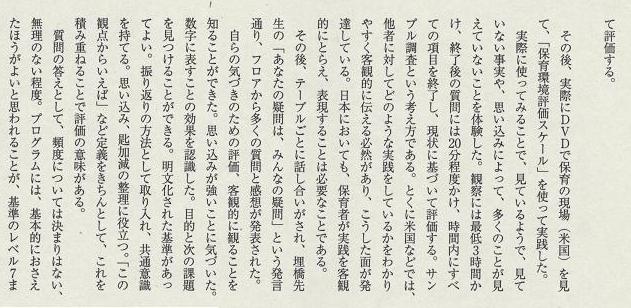 て評価する。
その後、実際にDVDで保育の現場（米国）を見
て、「保育環境評価スケール」を使って実践した。
実際に使ってみることで、見ているようで、見て
いない事実や、思い込みによって、多くのことが見
えていないことを体験した。観察には最低3時間か
け、終了後の質問には20分程度かけ、時間内にすべ
ての項目を終了し、現状に基づいて評価する。サン
プル調査という考え方である。とくに米国などでは、
他者に対してどのような実践をしているかをわかり
やすく客観的に伝える必然があり、こうした面が発
達している。日本においても、保育者が実践を客観
的にとらえ、表現することは必要なことである。
その後、テーブルごとに話し合いがされ、埋橋先
生の「あなたの疑問は、みんなの疑問」という発言
通り、フロアから多くの質問と感想が発表された。
自らの気づきのための評価、客観的に観ることを
知ることができた。思い込みが強いことに気づいた。
数字に表すことの効果を認識した。目的と次の課題
を見つけることができる。明文化された基準があっ
てよい。振り返りの方法として取り入れ、共通意識
を持てる。思い込み、匙加減の整理に役立つ。「この
観点からいえば」など定義をきちんとして、これを
積み重ねることで評価の意味がある。
質問の答えとして、頻度については決まりはない、
無理のない程度。プログラムには、基本的におさえ
たほうがよいと思われることが、基準のレベル7ま